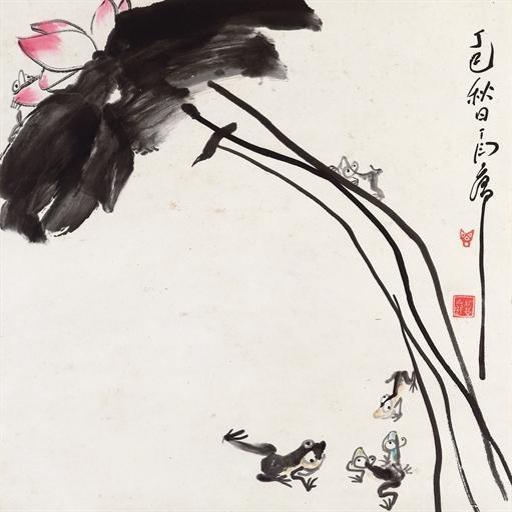 丁巳秋日丁衍庸